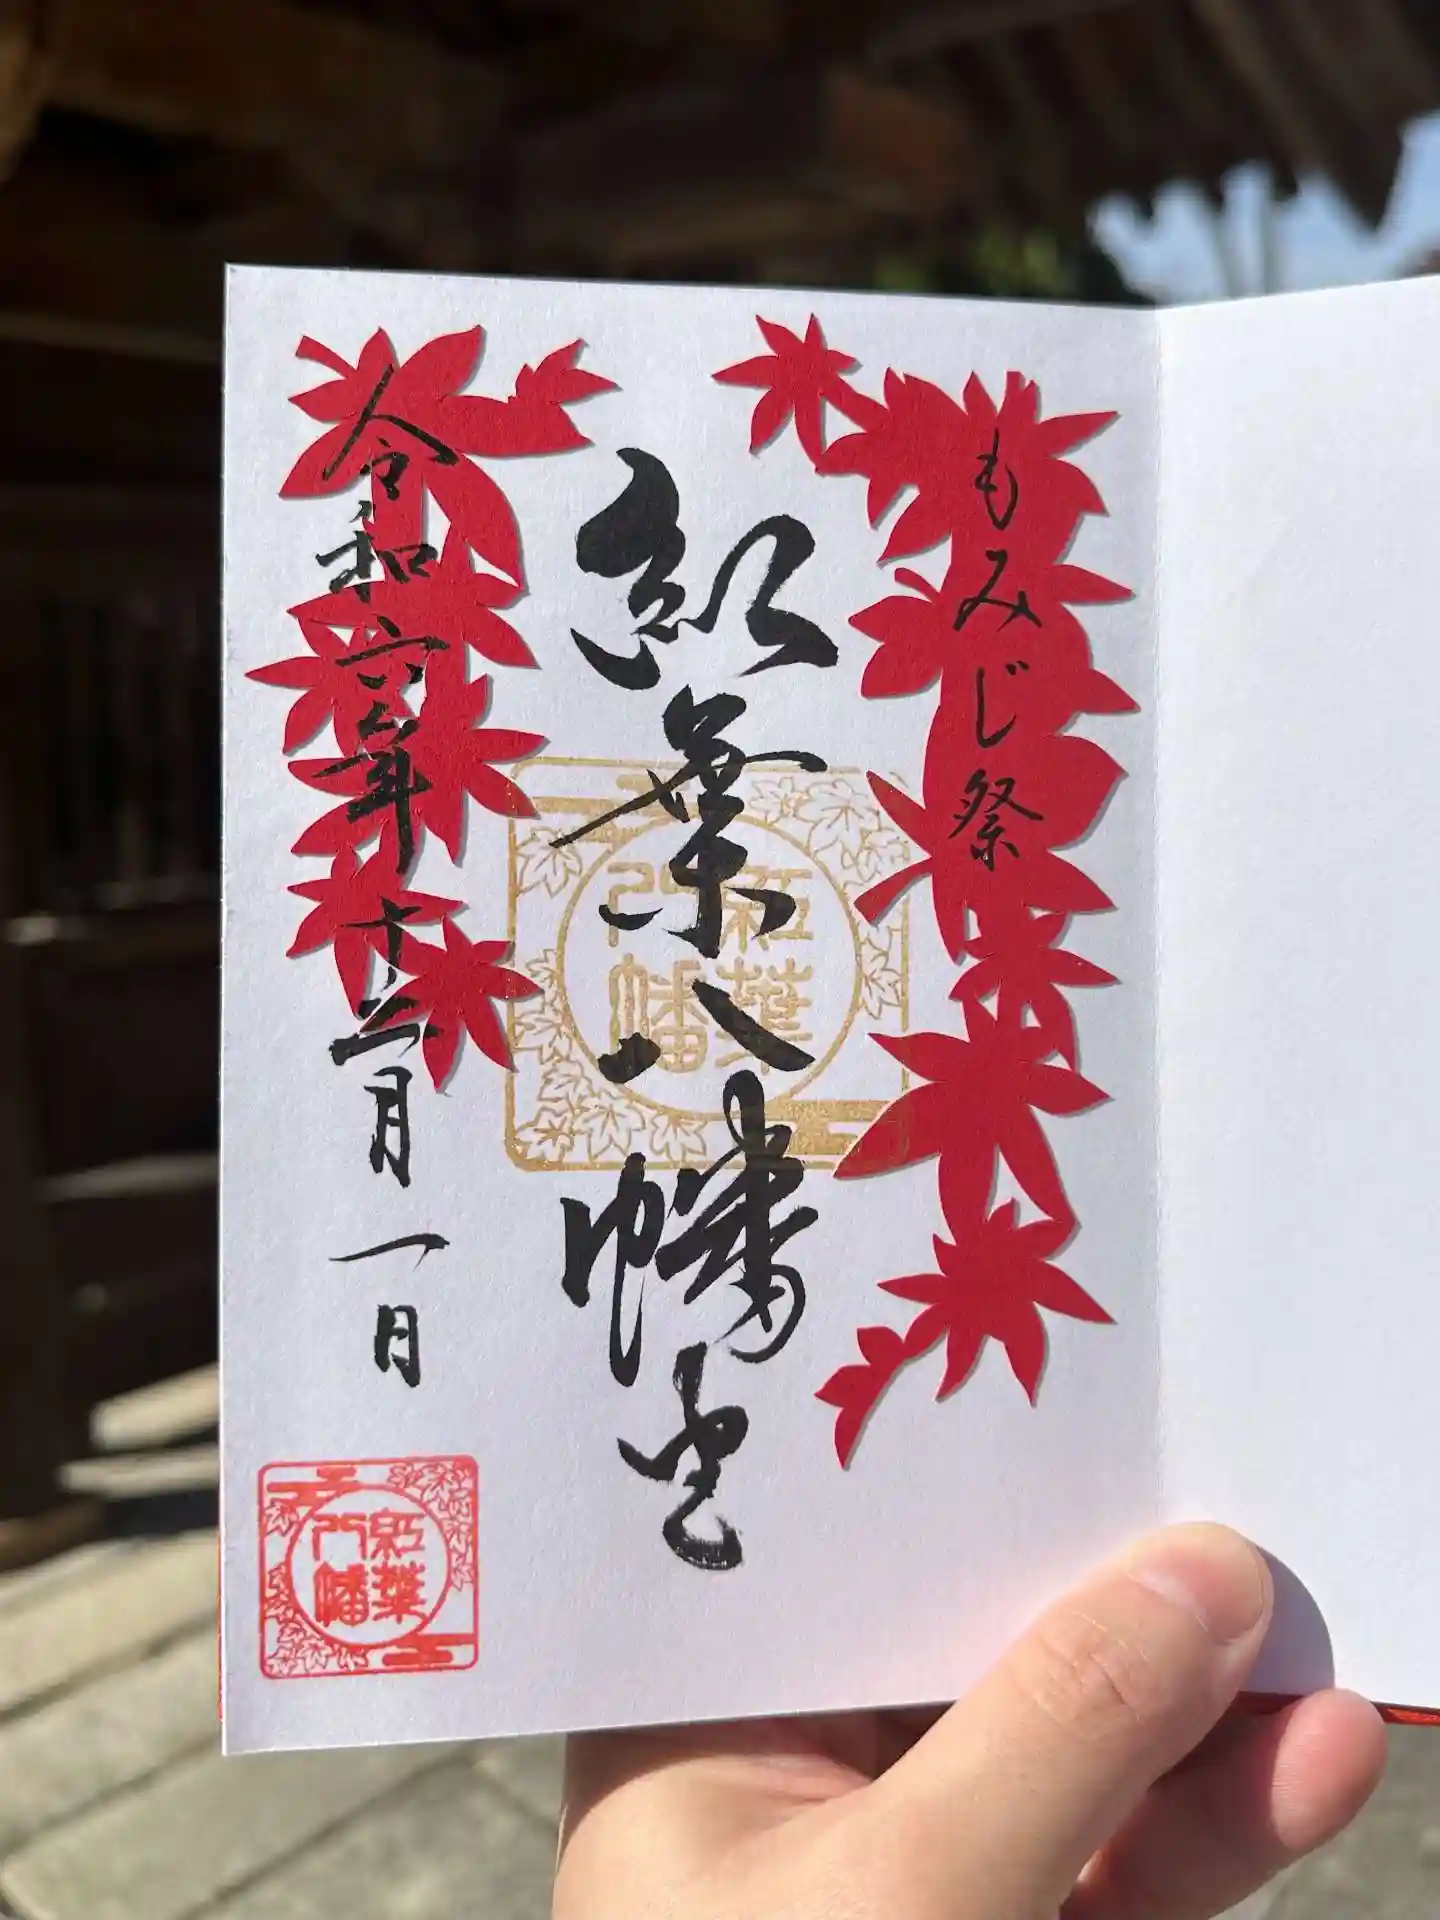 もみじ祭
紅葉八幡宮
紅葉
八幡
令和六年十二月一日
紅葉
八幡